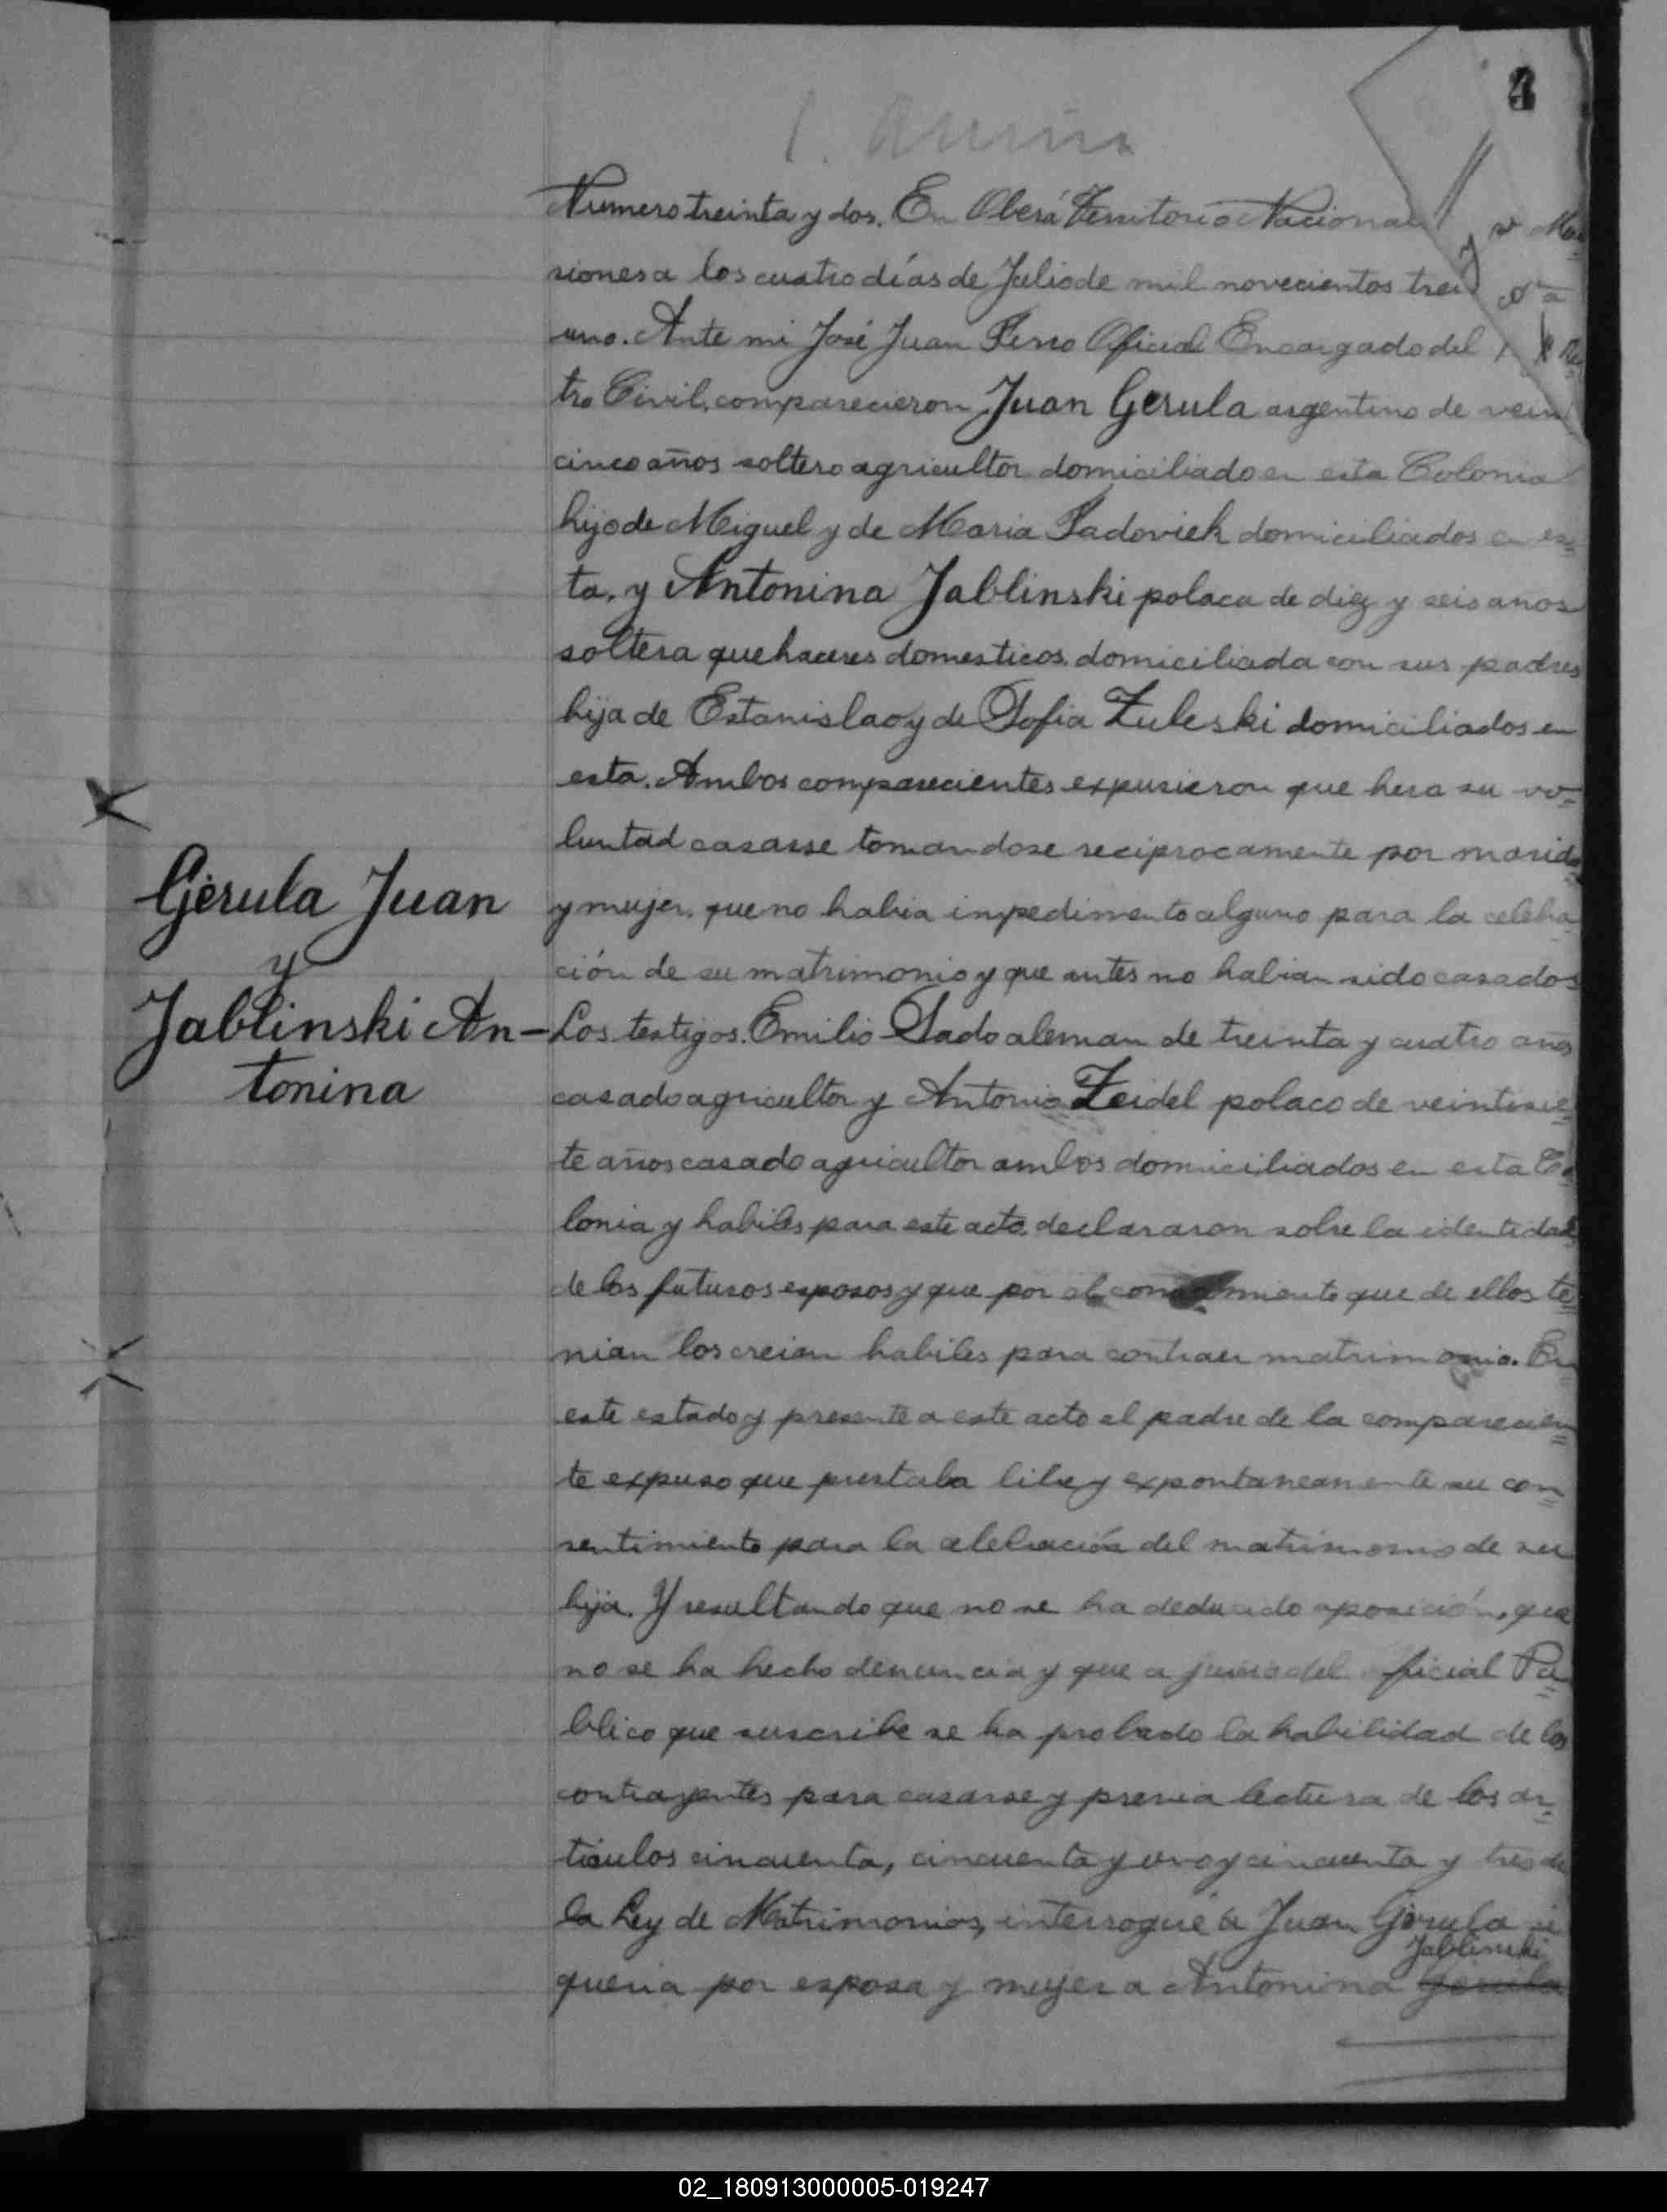 4
Numero treinta y dos. En Oberá Territorio Nacional
siones a los cuatro días de Julio de mil novecientos trei
uno. Ante mi José Juan Ferro Oficial Encargado del
tro Civil, comparecieron Juan Gerula argentino de vein
cinco años soltero agricultor domiciliado en esta Colonia
hijo de Miguel y de Maria Sadoviek domiciliados en es=
ta, y Antonina Jablinski polaca de diez y seis anos
soltera quehaceres domesticos domiciliada con sus padres
hija de Estanislao y de Sofia Zuleski domiciliados en
esta. Ambos comparecientes expusieron que hera su vo=
luntad casarse tomandose reciprocamente por marido
y mujer, que no habia impedimento alguno para la celebra
ción de su matrimonio y que antes no habian sido casados
Gerula Juan
y
Jablinski An-
tonina
Los testigos. Emilio Sado aleman de treinta y cuatro años
casado agricultor y Antonio Zeidel polaco de veintisie=
te años casado agricultor ambos domiciliados en esta Co
lonia y habiles para este acto, declararon sobre la identidad
de los futuros esposos y que por el conocimiento que de ellos te=
nian los creian habiles para contraer matrimonio. En
este estado y presente a este acto el padre de la comparecien=
te expuso que prestaba libre y expontaneamente su con=
sentimiento para la celebración del matrimonio de su
hija. Y resultando que no se ha deducido oposición, que
no se ha hecho denuncia y que a juicio del oficial Pu=
blico que suscribe se ha probado la habilidad de los
contrayentes para casarse y previa lectura de los ar=
ticulos cincuenta, cincuenta y uno y cincuenta y tres de
la Ley de Matrimonios, interrogué a Juan Gerula si
Jablinski
queria por esposa y mujer a Antonina Gerula
02_180913000005-019247